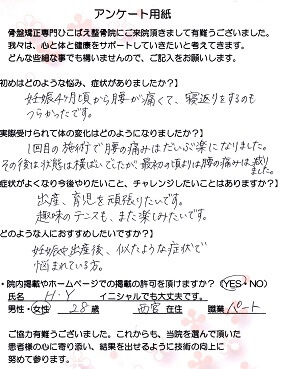 アンケート用紙
骨盤矯正専門ひこばえ整骨院にご来院頂きまして有難うございました。
我々は、心と体と健康をサポートしていきたいと考えてきます。
どんな些細な事でも構いませんので、ご記入をお願いします。
初めはどのような悩み、症状がありましたか？】
妊娠4ヶ月頃から腰が痛くて、寝返りをするのも
つらかったです。
実際受けられて体の変化はどのようになりましたか？】
1回目の施術で腰の痛みはだいぶ楽になりました。
その後は状態は横ばいでしたが、最初の頃よりは腰の痛みは減りました。
症状がよくなり今後やりたいこと、チャレンジしたいことはありますか？】
出産、育児を頑張りたいです。
趣味のテニスも、また楽しみたいです。
どのような人におすすめしたいですか？】
妊娠や出産後、似たような症状で
悩まれている方。
・院内掲載やホームページでの掲載の許可を頂けますか？（YES・NO）
氏名 H・Y イニシャルでも大丈夫です。
男性・女性 28歳 西宮 在住 職業 パート
ご協力有難うございました。これからも、当院を選んで頂いた
患者様の心に寄り添い、結果を出せるように技術の向上に
努めて参ります。